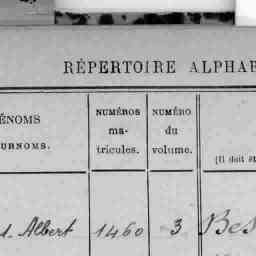 RÉPERTOIRE ALPHA
ÉNOMS
URNOMS.
NUMÉROS
ma-
tricules.
NUMÉRO
du
volume.
(Il doit ê
Albert 1460 3 Bes